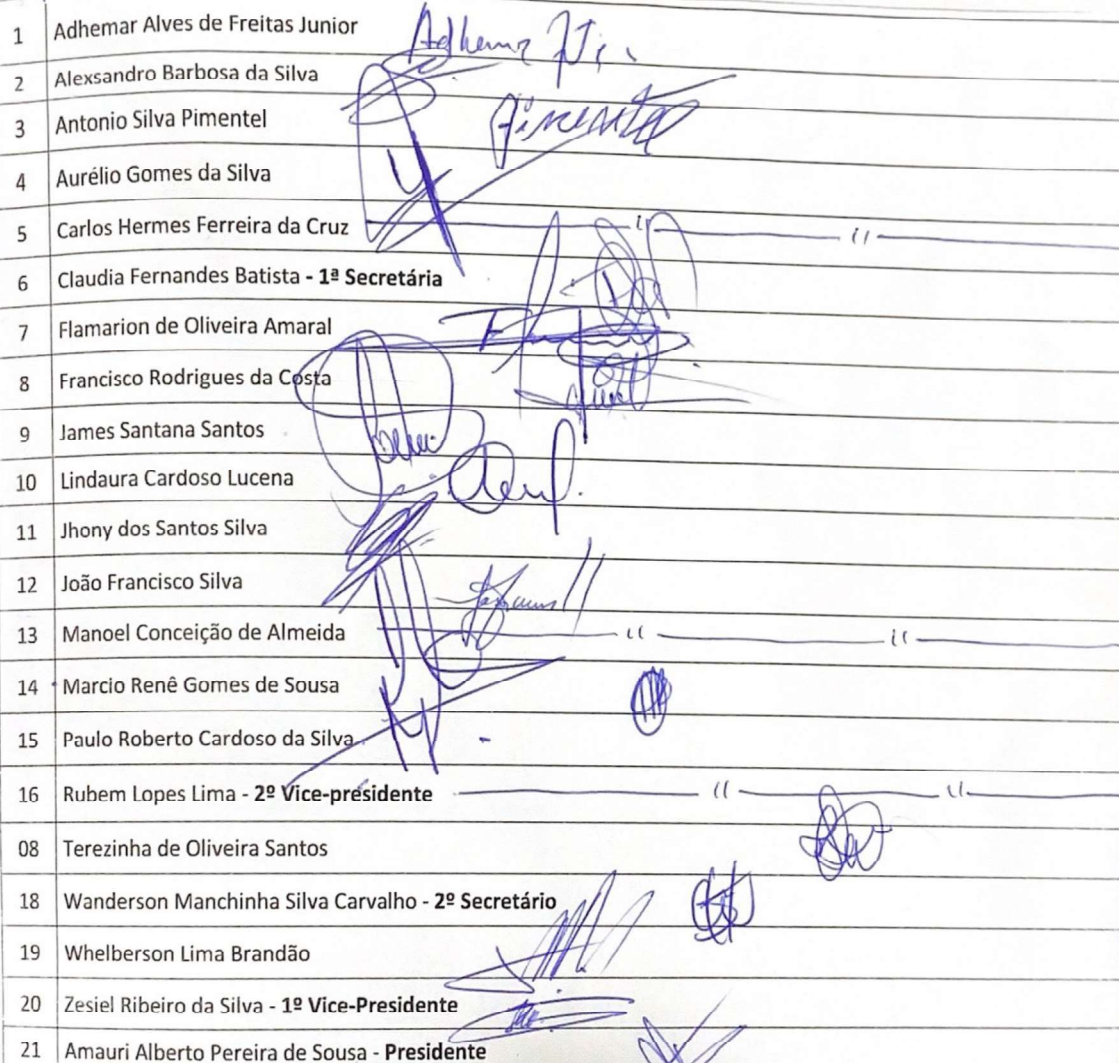 1 Adhemar Alves de Freitas Junior Adhemar
2 Alexsandro Barbosa da Silva
3 Antonio Silva Pimentel Pimentel
4 Aurélio Gomes da Silva
5 Carlos Hermes Ferreira da Cruz
6 Claudia Fernandes Batista - 1ª Secretária
7 Flamarion de Oliveira Amaral
8 Francisco Rodrigues da Costa
9 James Santana Santos
10 Lindaura Cardoso Lucena
11 Jhony dos Santos Silva
12 João Francisco Silva
13 Manoel Conceição de Almeida
14 Marcio Renê Gomes de Sousa
15 Paulo Roberto Cardoso da Silva
16 Rubem Lopes Lima - 2º Vice-presidente
08 Terezinha de Oliveira Santos
18 Wanderson Manchinha Silva Carvalho - 2º Secretário
19 Whelberson Lima Brandão
20 Zesiel Ribeiro da Silva - 1º Vice-Presidente
21 Amauri Alberto Pereira de Sousa - Presidente